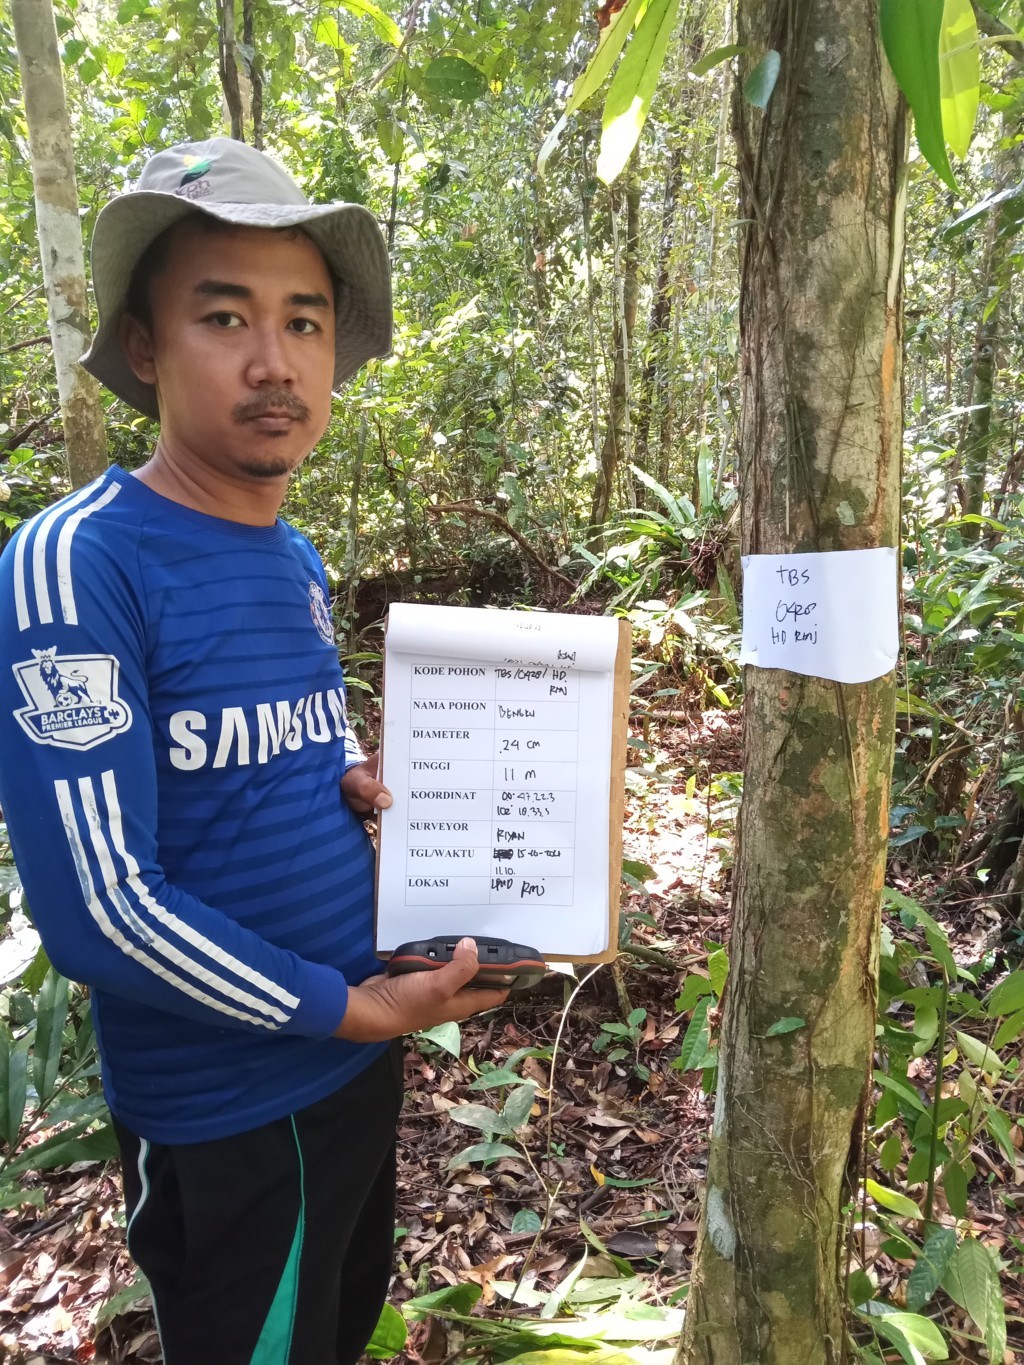 SAMSUN
BARCLAYS
PREMIER LEAGUE
KODE POHON TBS/0420/ HD
RMJ
NAMA POHON
DIAMETER 24 cm
TINGGI 11 M
KOORDINAT 00° 47, 22.3
102° 18.33.3
SURVEYOR
TGL/WAKTU 15-10-
11.10.
LOKASI RMJ
TBS
0420
HD RMJ